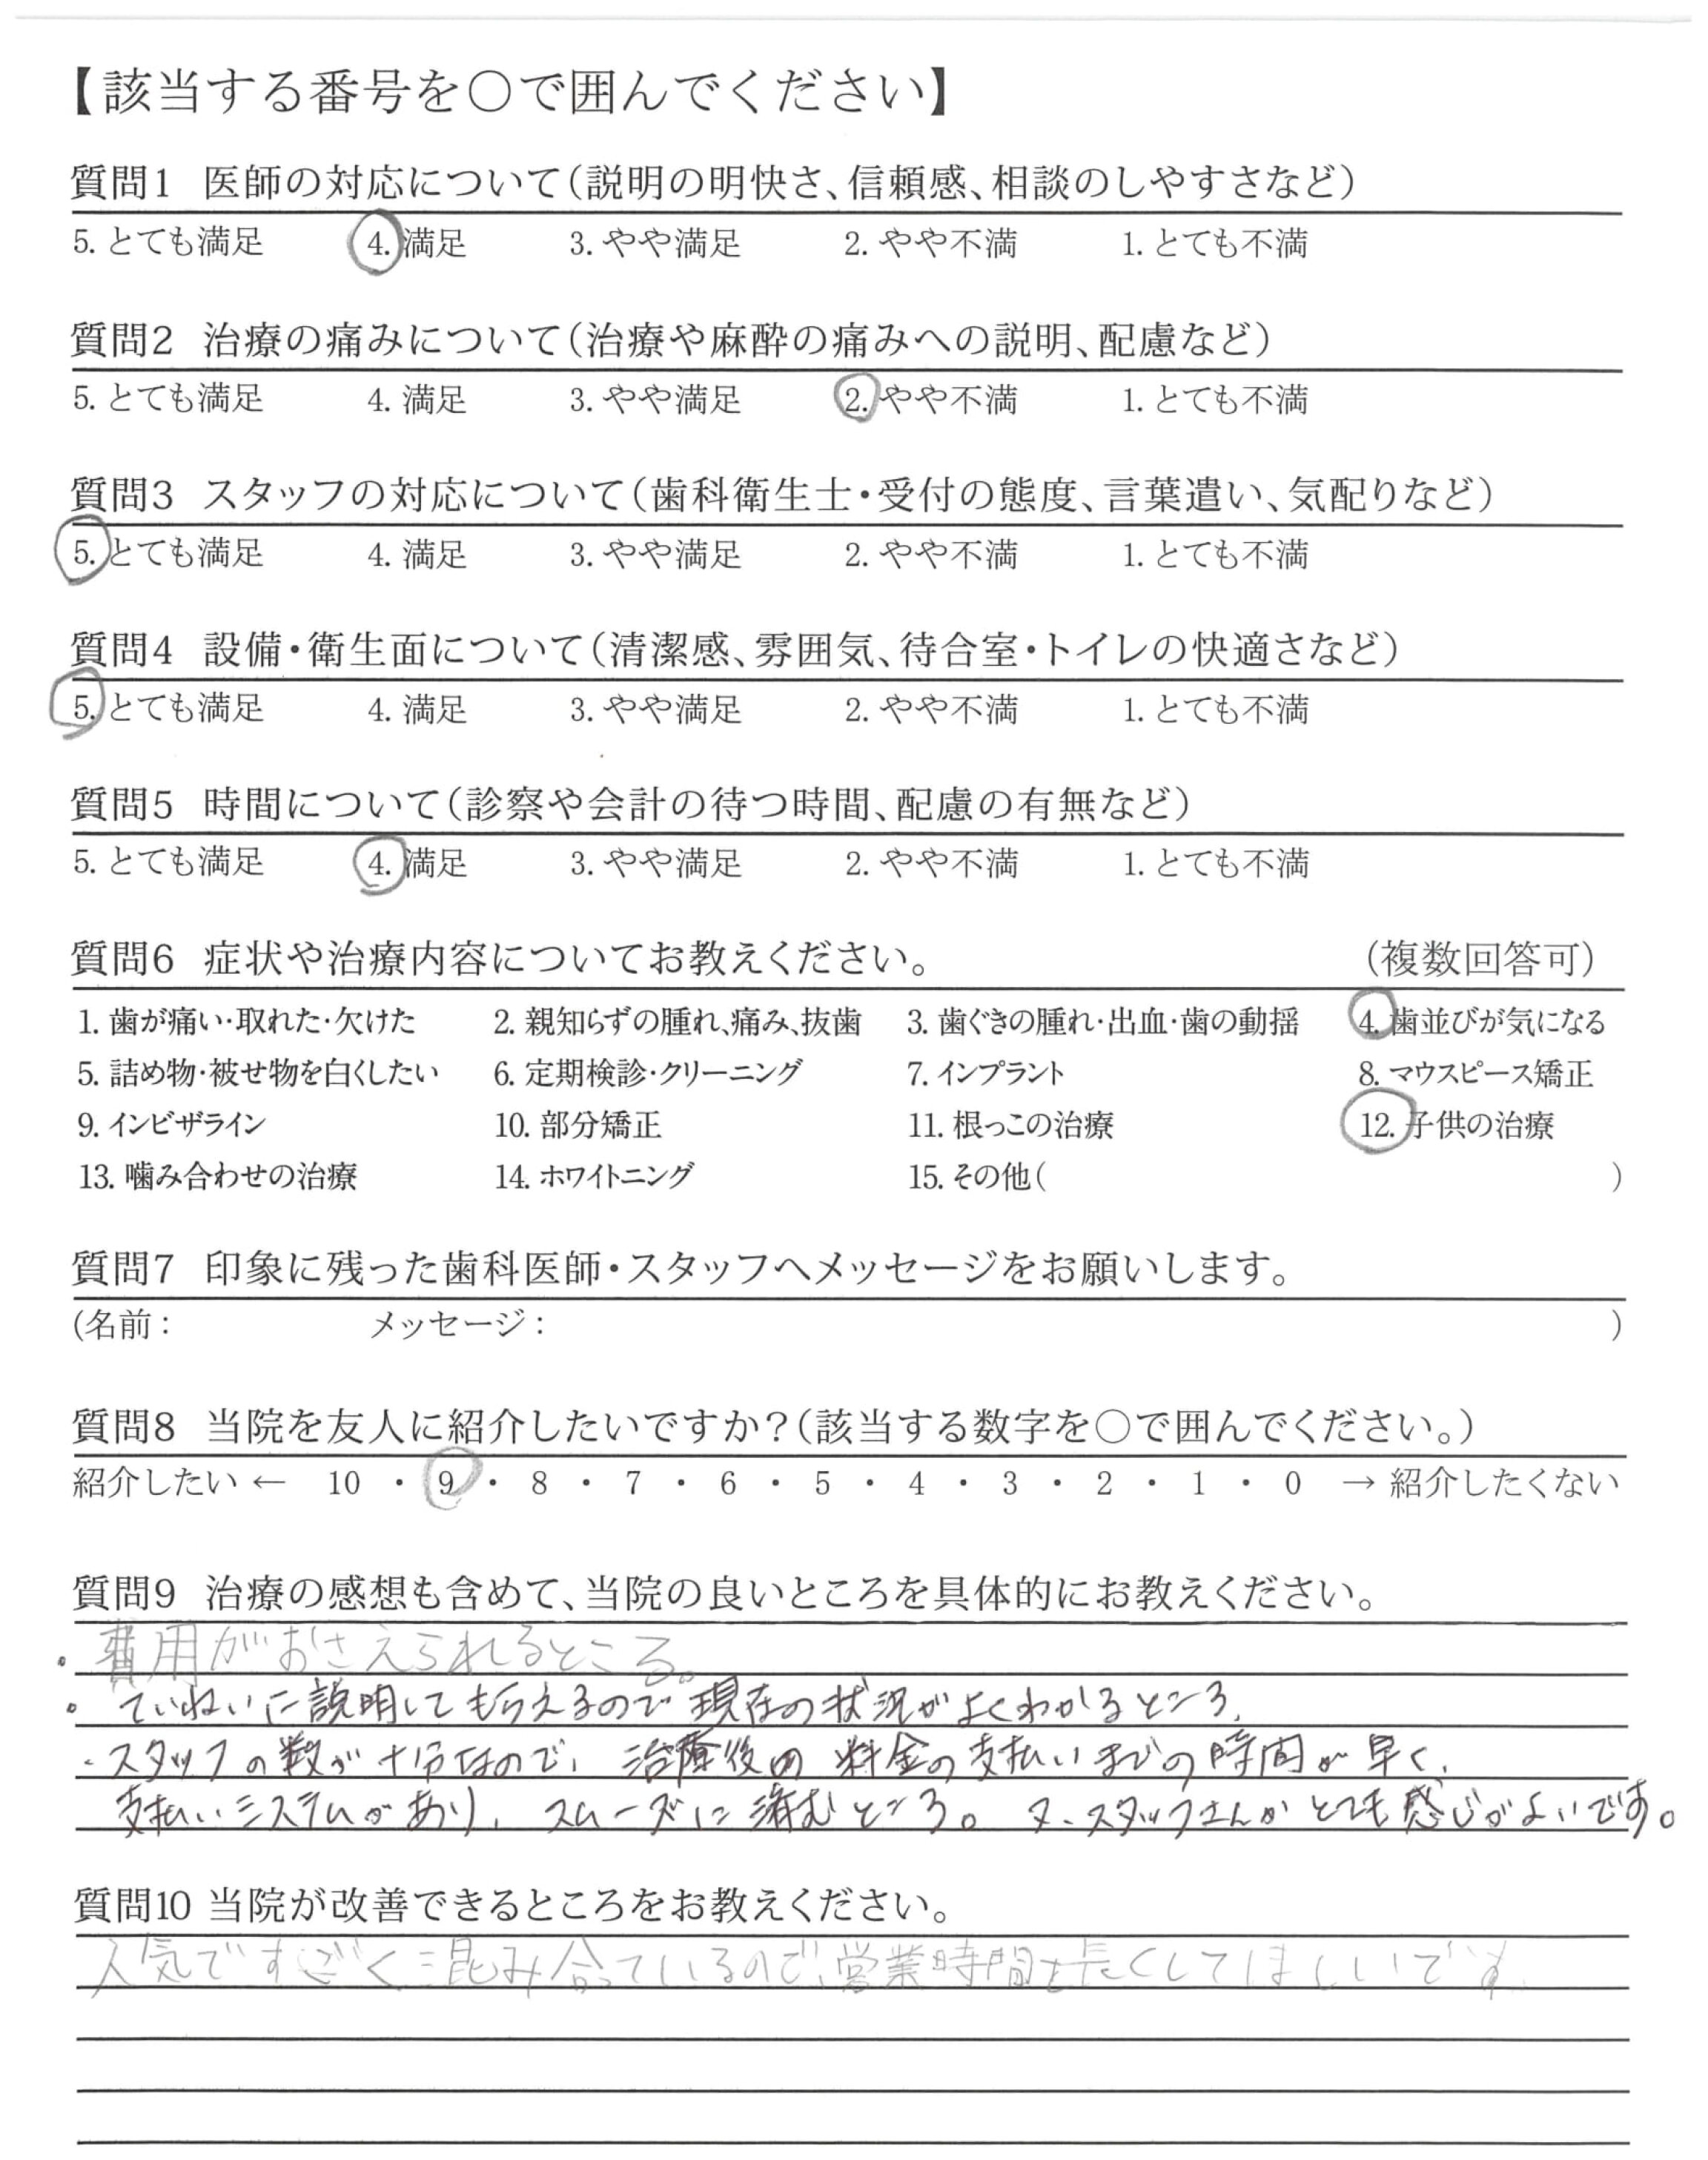 【該当する番号を○で囲んでください】
質問1 医師の対応について(説明の明快さ、信頼感、相談のしやすさなど)
5. とても満足 4. 満足 3. やや満足 2. やや不満 1. とても不満
質問2 治療の痛みについて(治療や麻酔の痛みへの説明、配慮など)
5. とても満足 4. 満足 3. やや満足 2. やや不満 1. とても不満
質問3 スタッフの対応について(歯科衛生士・受付の態度、言葉遣い、気配りなど)
5. とても満足 4. 満足 3. やや満足 2. やや不満 1. とても不満
質問4 設備・衛生面について(清潔感、雰囲気、待合室・トイレの快適さなど)
5. とても満足 4. 満足 3. やや満足 2. やや不満 1. とても不満
質問5 時間について(診察や会計の待つ時間、配慮の有無など)
5. とても満足 4. 満足 3. やや満足 2. やや不満 1. とても不満
質問6 症状や治療内容についてお教えください。 (複数回答可)
1. 歯が痛い・取れた・欠けた 2. 親知らずの腫れ、痛み、抜歯 3. 歯ぐきの腫れ・出血・歯の動揺 4. 歯並びが気になる
5. 詰め物・被せ物を白くしたい 6. 定期検診・クリーニング 7. インプラント 8. マウスピース矯正
9. インビザライン 10. 部分矯正 11. 根っこの治療 12. 子供の治療
13. 噛み合わせの治療 14. ホワイトニング 15. その他( )
質問7 印象に残った歯科医師・スタッフへメッセージをお願いします。
(名前: メッセージ: )
質問8 当院を友人に紹介したいですか?(該当する数字を○で囲んでください。)
紹介したい ← 10 ・ 9 ・ 8 ・ 7 ・ 6 ・ 5 ・ 4 ・ 3 ・ 2 ・ 1 ・ 0 → 紹介したくない
質問9 治療の感想も含めて、当院の良いところを具体的にお教えください。
・費用がおさえられるところ。
・ていねいに説明してもらえるので現在の状況がよくわかるところ、
・スタッフの数が十分なので、治療後の料金の支払いまでの時間が早く、
支払いシステムがあり、スムーズに済むところ。又、スタッフさんがとても感じがよいです。
質問10 当院が改善できるところをお教えください。
人気ですごく混み合っているので、営業時間を長くしてほしいです